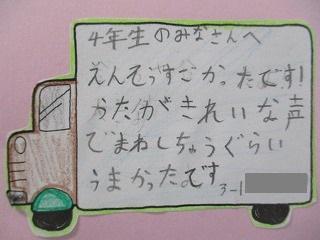 4年生のみなさんへ
えんそうすごかったです!
かたがきれいな声
でまねしちゅうぐらい
うまかったです
3-1